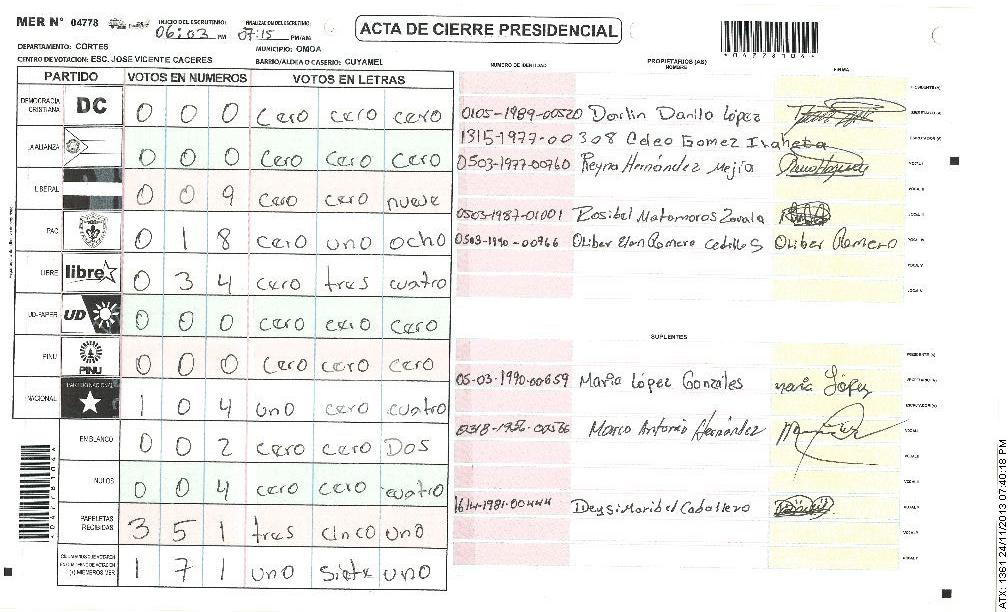 MER N° 04778 INICIO DEL ESCRUTINIO: 06:03 PM FINALIZACION DEL ESCRUTINIO: 07:15 PM/AM
ACTA DE CIERRE PRESIDENCIAL
*04778104*
DEPARTAMENTO: CORTES MUNICIPIO: OMOA
CENTRO DE VOTACION: ESC. JOSE VICENTE CACERES BARRIO/ALDEA O CASERIO: CUYAMEL
PARTIDO VOTOS EN NUMEROS VOTOS EN LETRAS
DEMOCRACIA CRISTIANA DC 0 0 0 cero cero cero
LA ALIANZA 0 0 0 cero cero cero
LIBERAL 0 0 9 cero cero nueve
PAC 0 1 8 cero uno ocho
LIBRE libre 0 3 4 cero tres cuatro
UD-FAPER UD 0 0 0 cero cero cero
PINU PINU 0 0 0 cero cero cero
NACIONAL PARTIDO NACIONAL 1 0 4 uno cero cuatro
EN BLANCO 0 0 2 cero cero Dos
NULOS 0 0 4 cero cero cuatro
PAPELETAS RECIBIDAS 3 5 1 tres cinco uno
1 7 1 uno siete uno
NUMERO DE IDENTIDAD PROPIETARIOS (AS) NOMBRE FIRMA
PRESIDENTE(A)
0105-1989-00520 Darlin Danilo López SECRETARIO(A)
1315-1977-00308 Celeo Gomez ESCRUTADOR(A)
0503-1977-00760 Reyna Hernández Mejia VOCAL I
VOCAL II
0503-1987-01001 Rosibel Matamoros Zavala VOCAL III
0503-1990-00766 Oliber Elan Romero Cedillos Oliber Romero VOCAL IV
VOCAL V
VOCAL VI
SUPLENTES
PRESIDENTE(A)
05-03-1990-00659 Maria López Gonzales maria López SECRETARIO(A)
ESCRUTADOR(A)
Marco Antonio Hernández VOCAL I
VOCAL II
VOCAL III
1614-1981-00444 Deysi Maribel Caballero
ATX: 1361 24/11/2013 07:40:18 PM